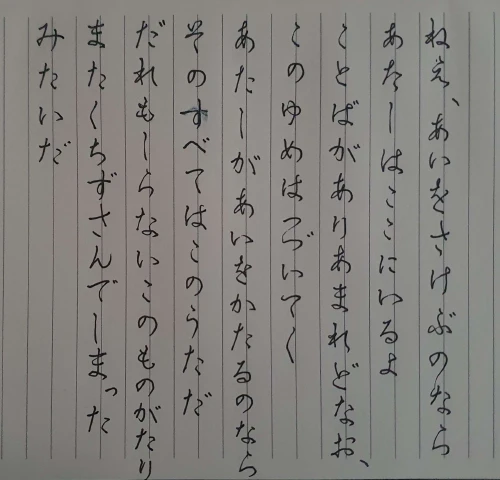 ねえ、あいをさけぶのなら
あたしはここにいるよ
ことばがありあまれどなお、
このゆめはつづいてく
あたしがあいをかたるのなら
そのすべてはこのうただ
だれもしらないこのものがたり
またくちずさんでしまった
みたいだ